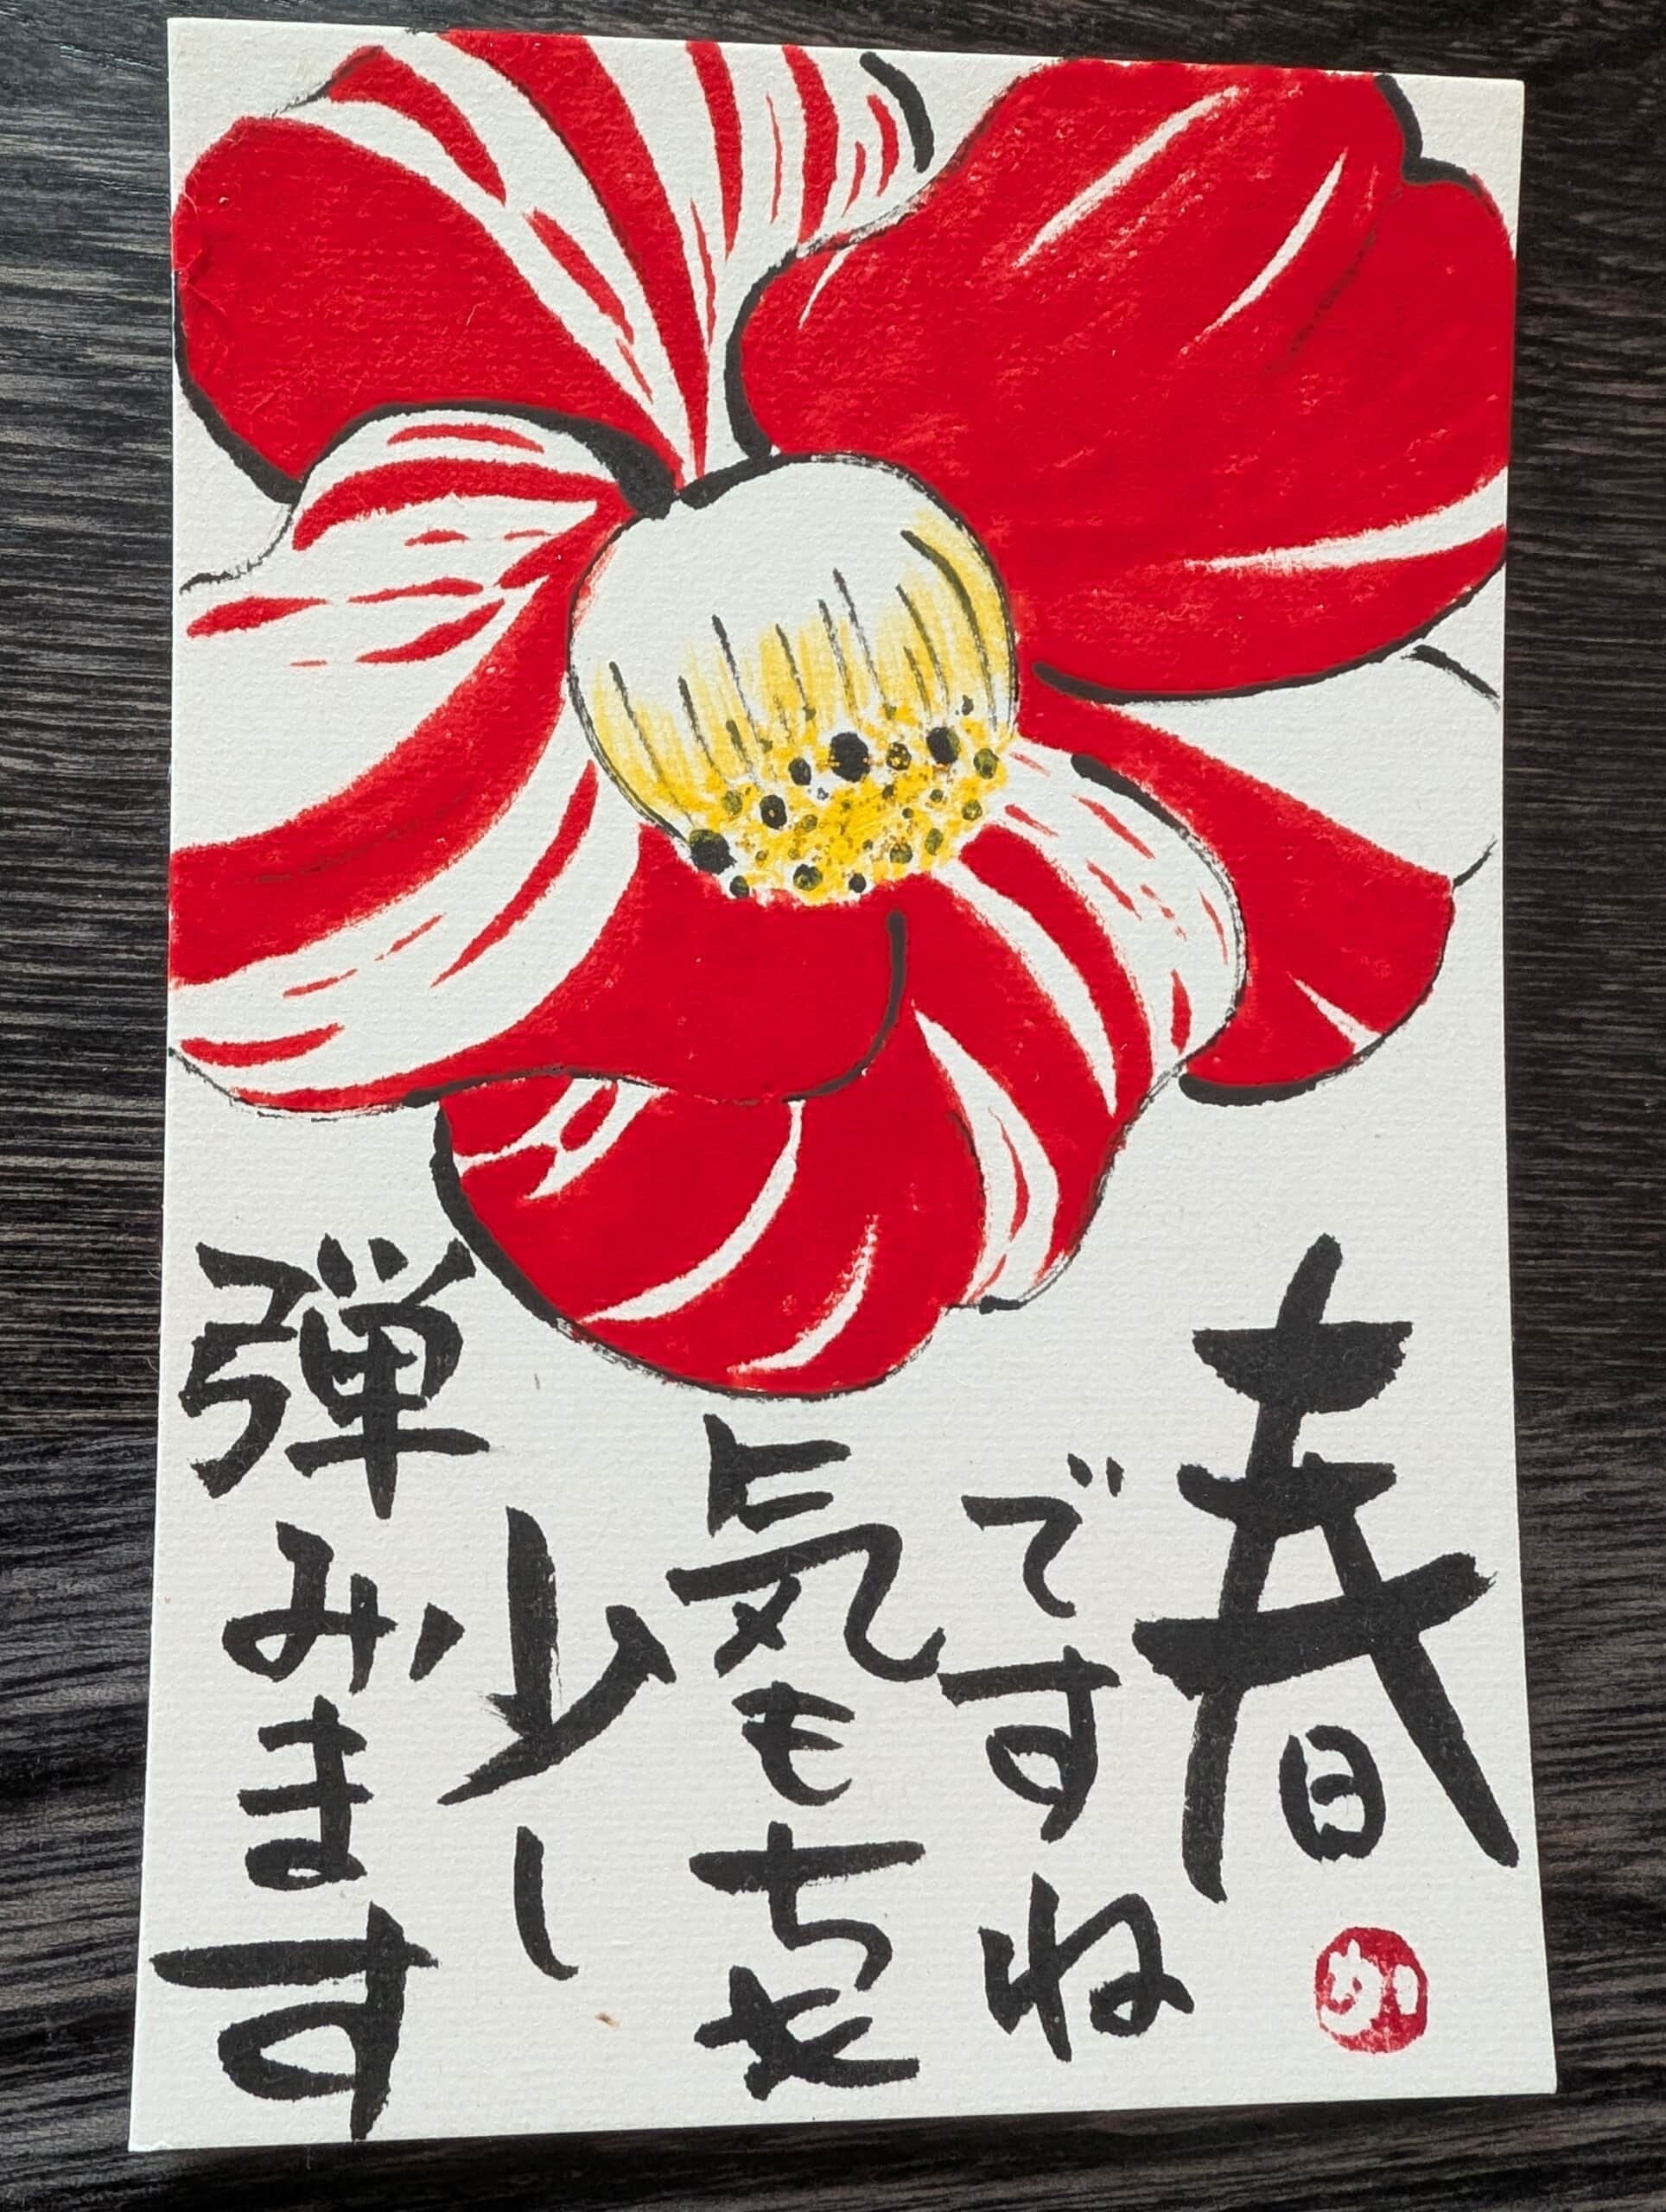 春
ですね
気もちも
少し
弾みます